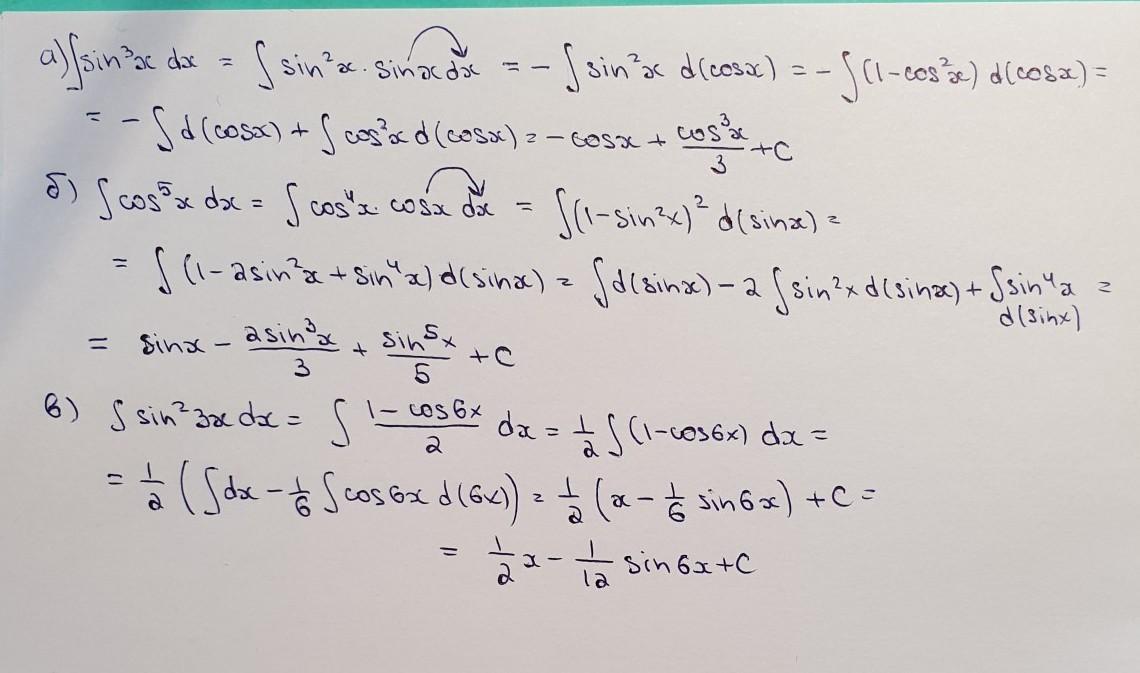 а) ∫sin³x dx = ∫ sin²x · sinx dx = - ∫ sin²x d(cosx) = - ∫ (1-cos²x) d(cosx) =
= - ∫ d(cosx) + ∫ cos²x d(cosx) = - cosx + cos³x/3 + C
б) ∫ cos⁵x dx = ∫ cos⁴x · cosx dx = ∫(1-sin²x)² d(sinx) =
= ∫ (1-2sin²x + sin⁴x) d(sinx) = ∫d(sinx) - 2 ∫ sin²x d(sinx) + ∫sin⁴x d(sinx) =
= sinx - 2sin³x/3 + sin⁵x/5 + C
в) ∫ sin²3x dx = ∫ (1-cos6x)/2 dx = 1/2 ∫ (1-cos6x) dx =
= 1/2 (∫dx - 1/6 ∫ cos6x d(6x)) = 1/2 (x - 1/6 sin6x) + C =
= 1/2 x - 1/12 sin6x + C